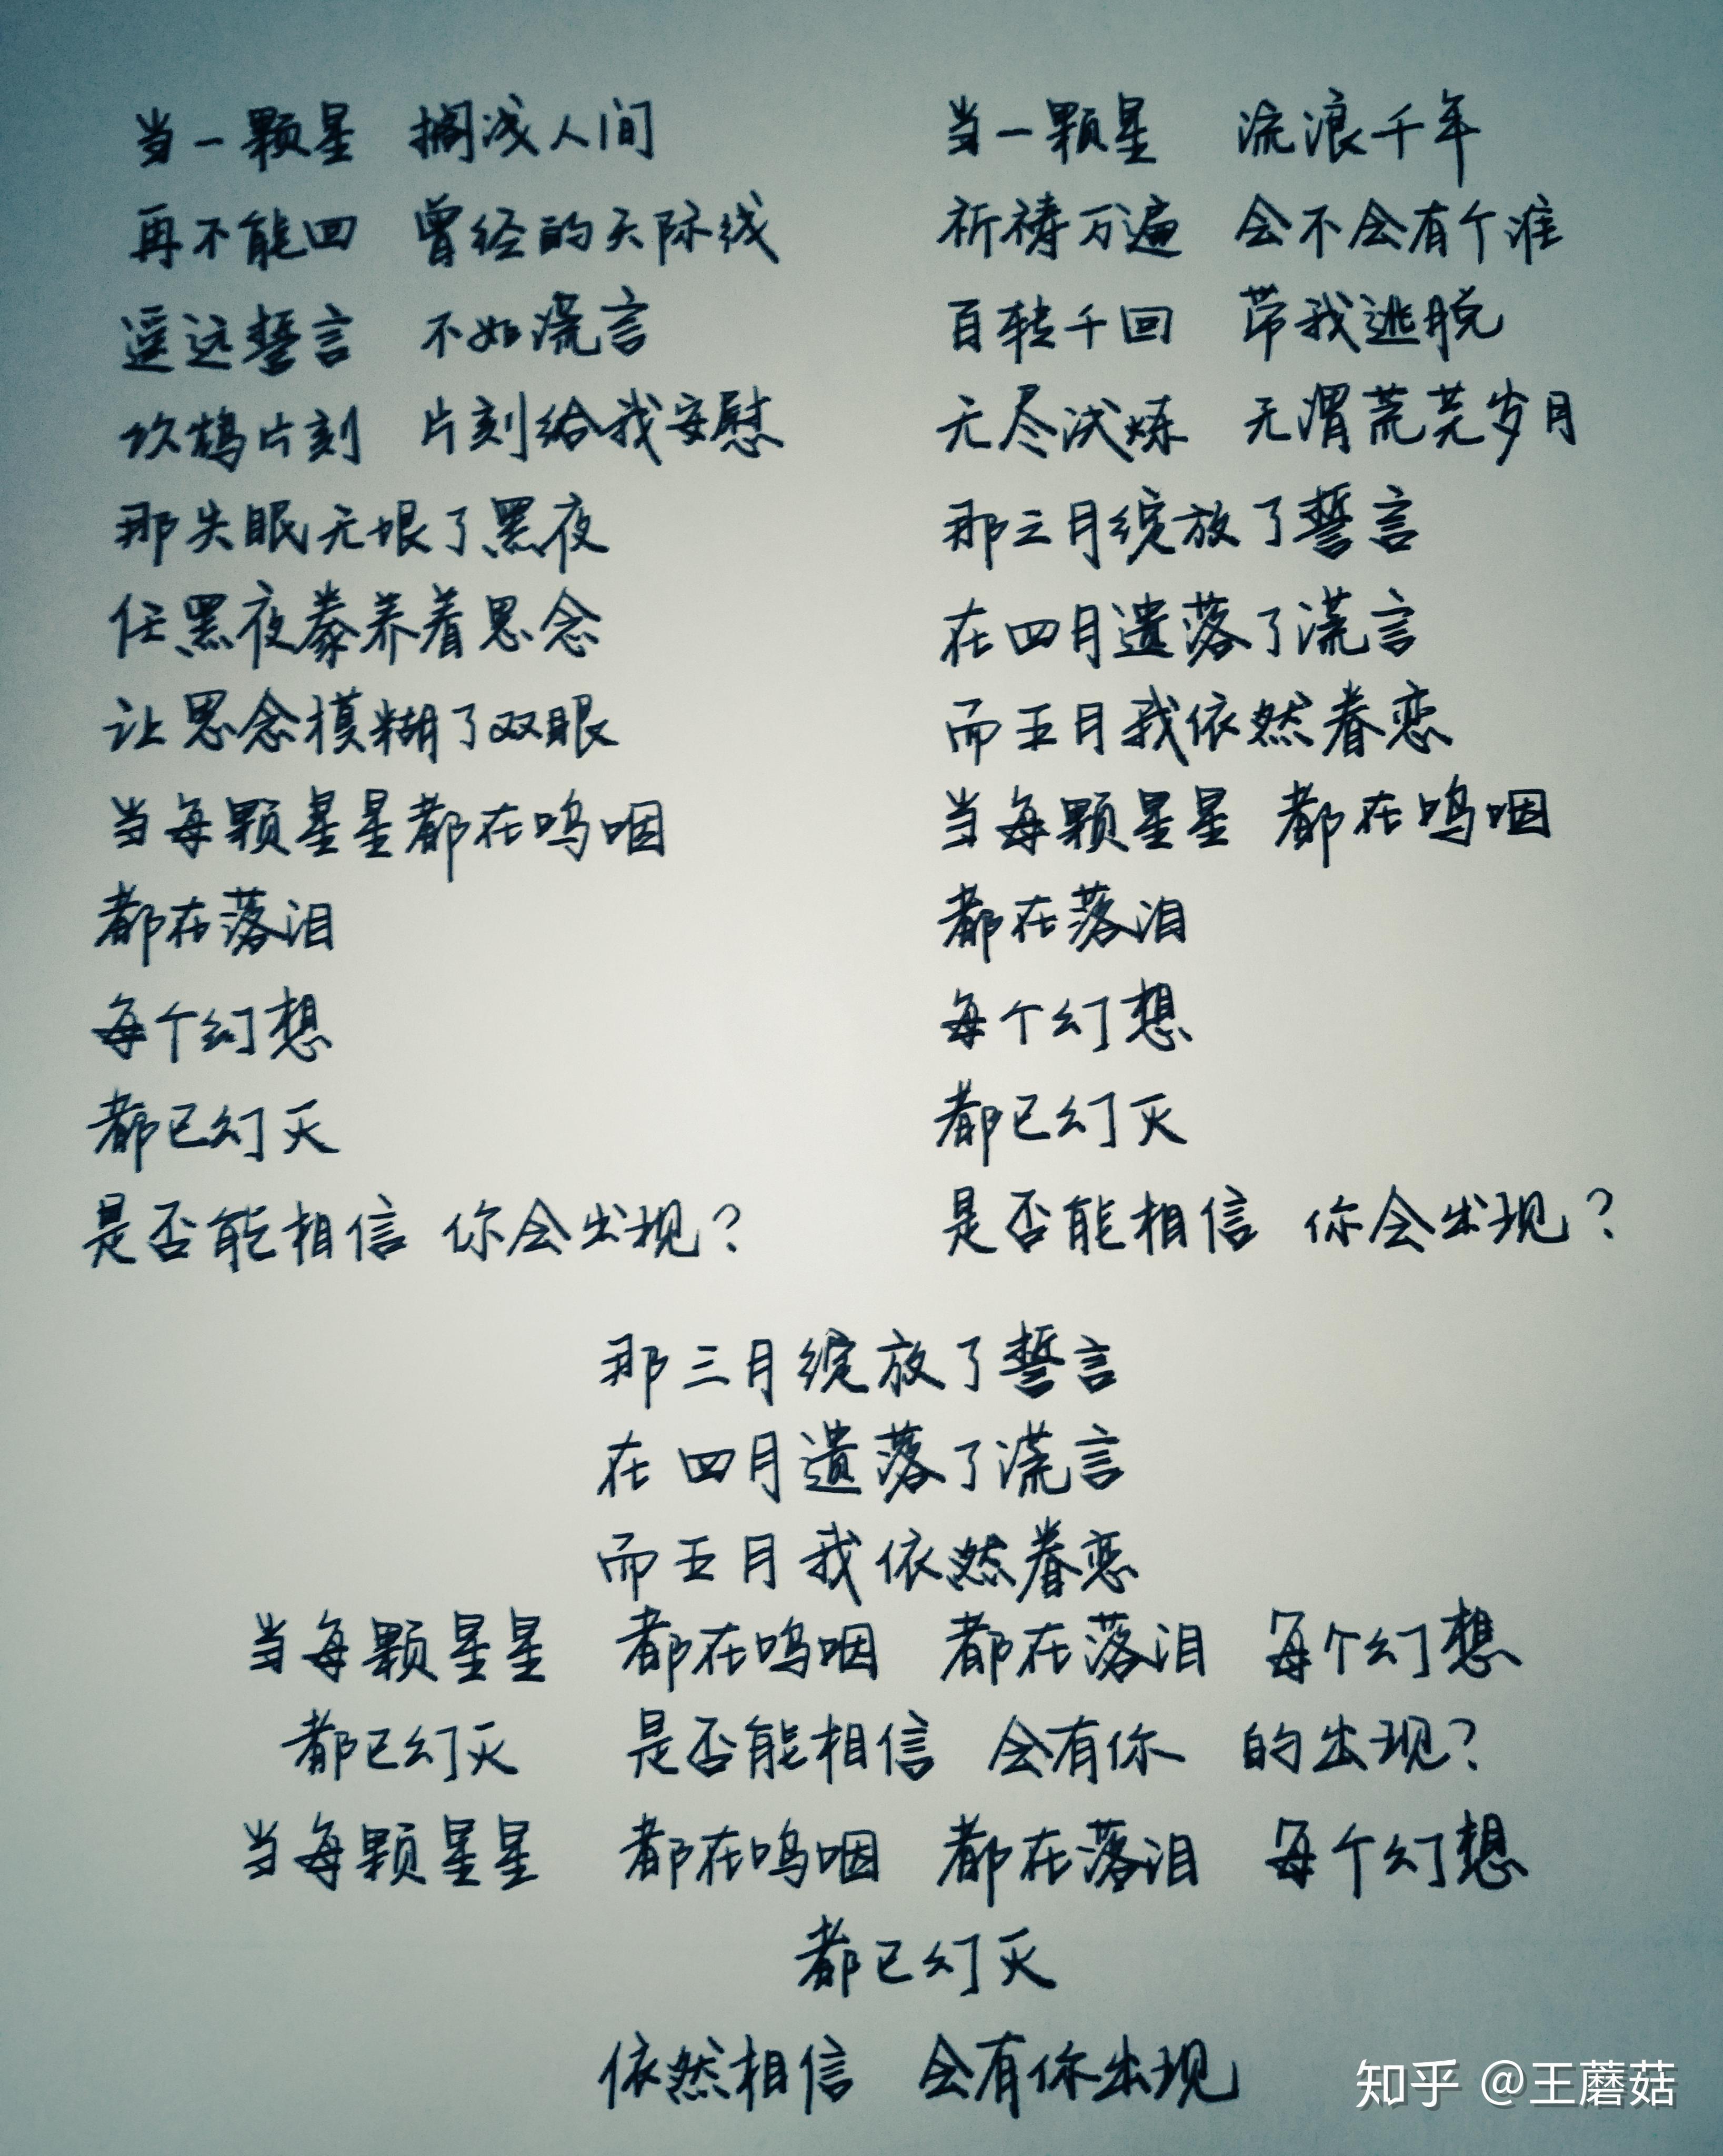 当一颗星 搁浅人间
再不能回 曾经的天际线
遥远誓言 不如谎言
饮鸩片刻 片刻给我安慰
那失眠无垠了黑夜
任黑夜豢养着思念
让思念模糊了双眼
当每颗星星都在呜咽
都在落泪
每个幻想
都已幻灭
是否能相信 你会出现?
当一颗星 流浪千年
祈祷万遍 会不会有个谁
百转千回 带我逃脱
无尽试炼 无谓荒芜岁月
那三月绽放了誓言
在四月遗落了谎言
而五月我依然眷恋
当每颗星星 都在呜咽
都在落泪
每个幻想
都已幻灭
是否能相信 你会出现?
那三月绽放了誓言
在四月遗落了谎言
而五月我依然眷恋
当每颗星星 都在呜咽 都在落泪 每个幻想
都已幻灭 是否能相信 会有你 的出现?
当每颗星星 都在呜咽 都在落泪 每个幻想
都已幻灭
依然相信 会有你出现
知乎 @王蘑菇